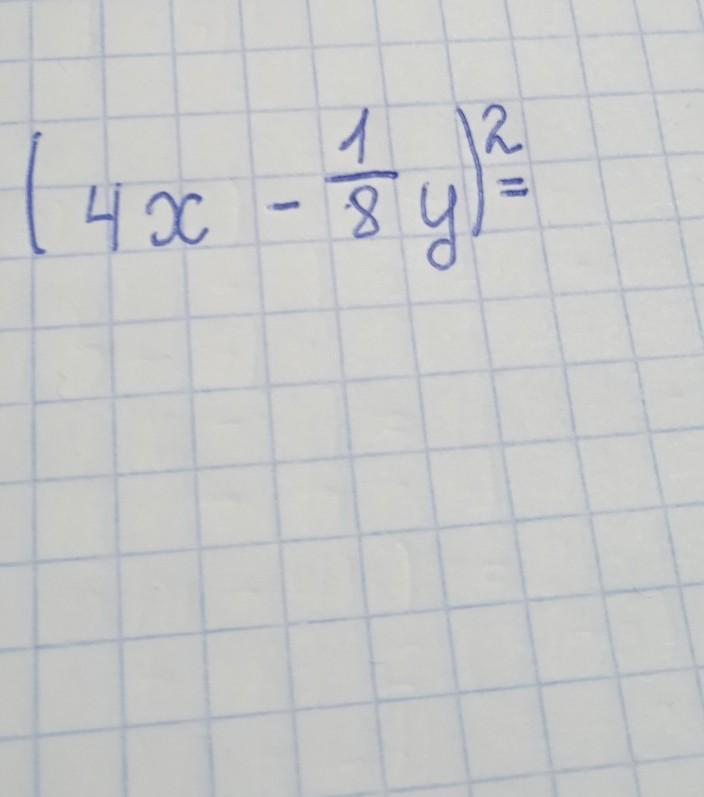 (4x - \frac{1}{8} y)^2 =